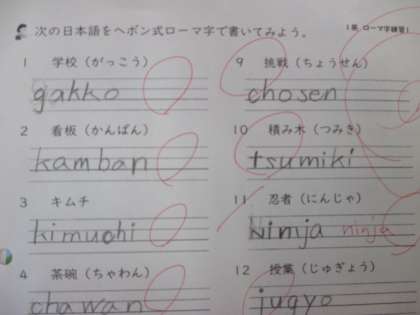 次の日本語をヘボン式ローマ字で書いてみよう。
1 学校(がっこう)
gakko
2 看板(かんばん)
kamban
3 キムチ
kimuchi
4 茶碗(ちゃわん)
chawan
9 挑戦(ちょうせん)
chosen
10 積み木(つみき)
tsumiki
11 忍者(にんじゃ)
Nimja ninja
12 授業(じゅぎょう)
jugyo